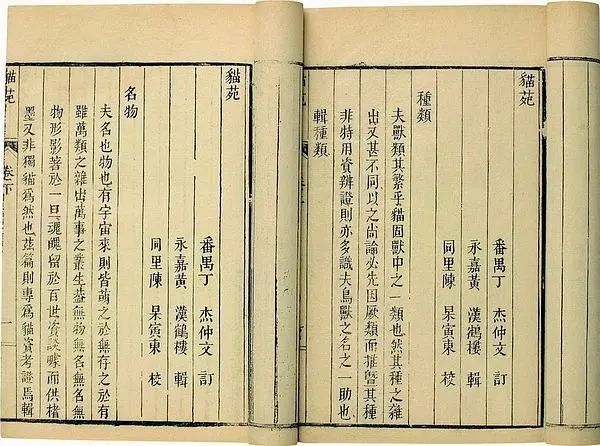 貓苑
番禺丁 杰仲文 訂
永嘉黃 漢鶴樓 輯
同里陳 杲寅東 校
種類
夫獸類其繁乎貓固獸中之一類也然其種之雜
出又甚不同以之尚論必先因厥類而推暨其種
非特用資辨證則亦多識夫鳥獸之名之一助也
輯種類
貓苑
番禺丁 杰仲文 訂
永嘉黃 漢鶴樓 輯
同里陳 杲寅東 校
名物
夫名也物也有字宙來則皆萌之於無存之於有
雖萬類之雜出萬事之叢生蓋無物無名無名無
物形影著於一旦魂魄留於百世資談噱而供楮
墨又非獨貓爲然也茲篇則專爲貓資考證焉輯
貓苑 卷下 一